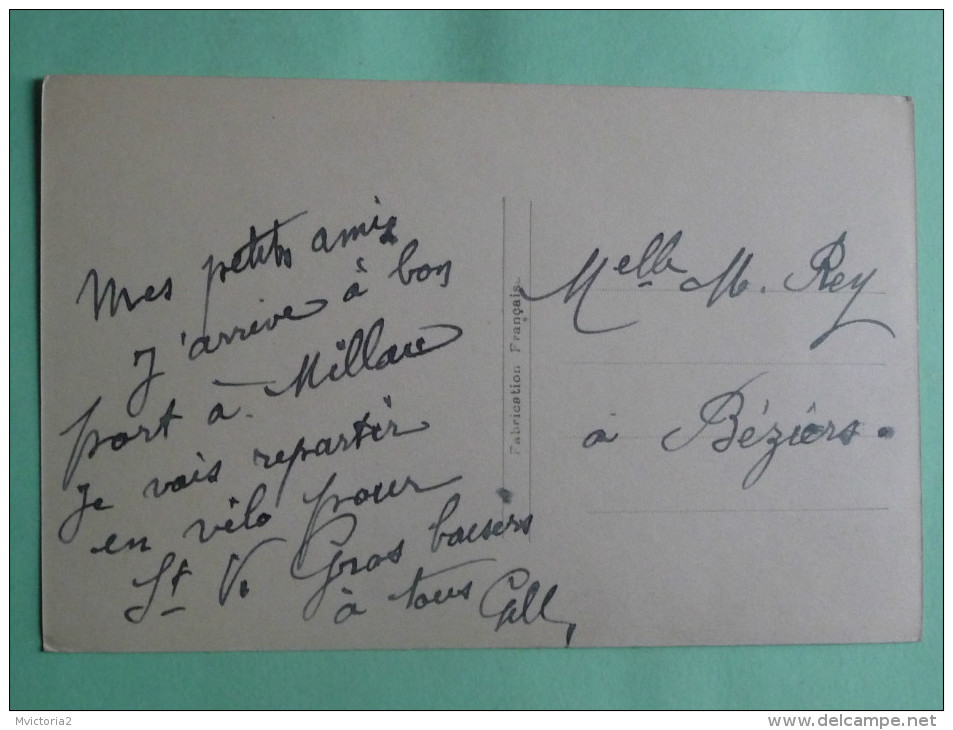 Mes petits amis
J'arrive à bon
port à Millau
Je vais repartir
en vélo pour
St V. Gros baisers
à tous
Fabrication Française
Melle M. Rey
à Béziers.
Mvictoria2
www.delcampe.net